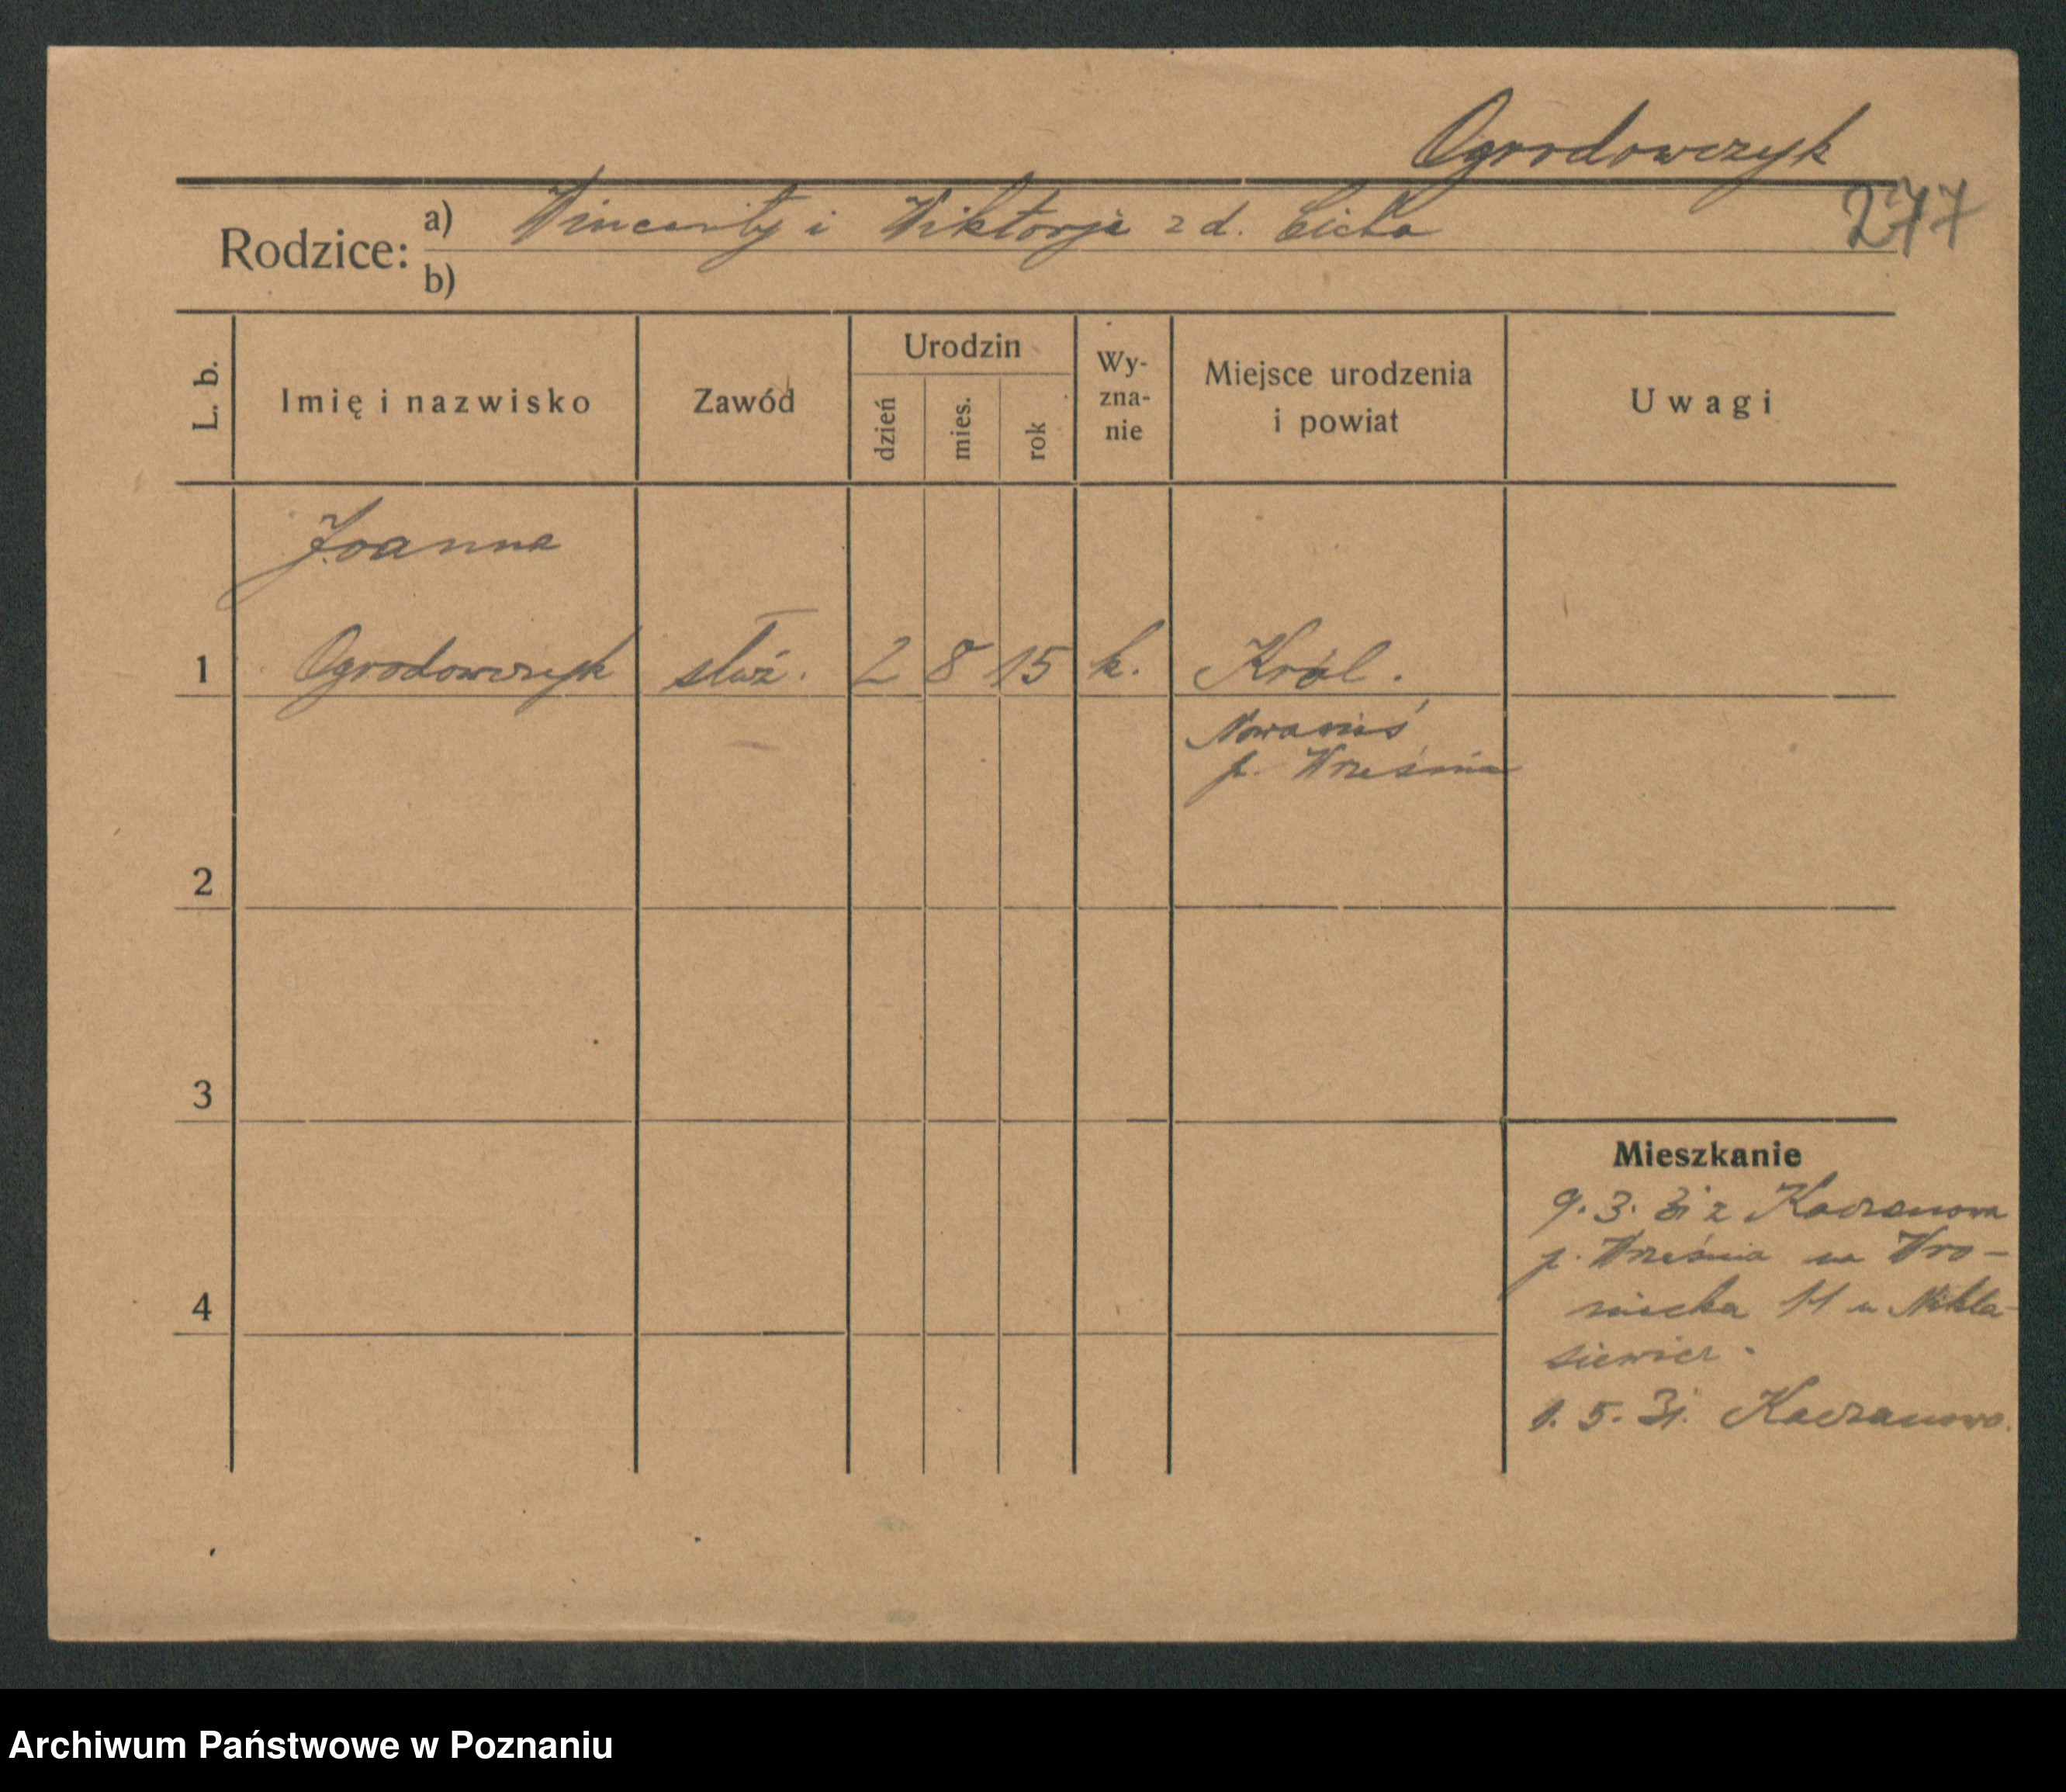 Ogrodowczyk
277
Rodzice: a) Wincenty i Wiktorja z d. Cicha
b)
L. b.
Imię i nazwisko
Zawód
Urodzin
dzień
mies.
rok
Wy-
zna-
nie
Miejsce urodzenia
i powiat
Uwagi
Joanna
1 Ogrodowczyk służ. 2 8 15 k. Król.
Nowawieś
p. Września
2
3
4
Mieszkanie
9. 3. 31 z Kaczanowa
p. Września na Wro-
niecka 11 u Mikła-
siewicz.
1. 5. 31. Kaczanowo.
Archiwum Państwowe w Poznaniu